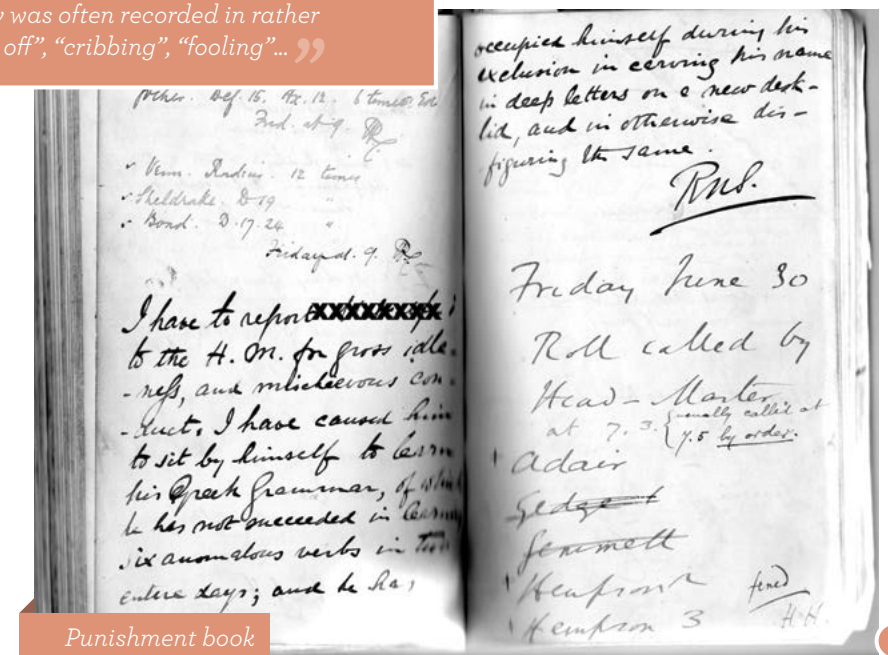 y was often recorded in rather
off”, “cribbing”, “fooling”... ”
Def. 15. Ax. 12. 6 times.
Frid. at 9.
Venn. Radius. 12 times
Sheldrake. D 19 "
Bond. D. 17. 24 "
Friday at. 9.
I have to report XXXXXXXX
to the H. M. for gross idle-
-ness, and mischievous con-
-duct. I have caused him
to sit by himself to learn
his Greek Grammar, of which
he has not succeeded in learning
six anomalous verbs in two
entire days; and he has
Punishment book
occupied himself during his
exclusion in carving his name
in deep letters on a new desk-
lid, and in otherwise dis-
figuring the same.
Friday June 30
Roll called by
Head-Master
at 7. 3. {usually called at
7.5 by order.
Adair
Gedge
Gemmett
fined
3 H. H.